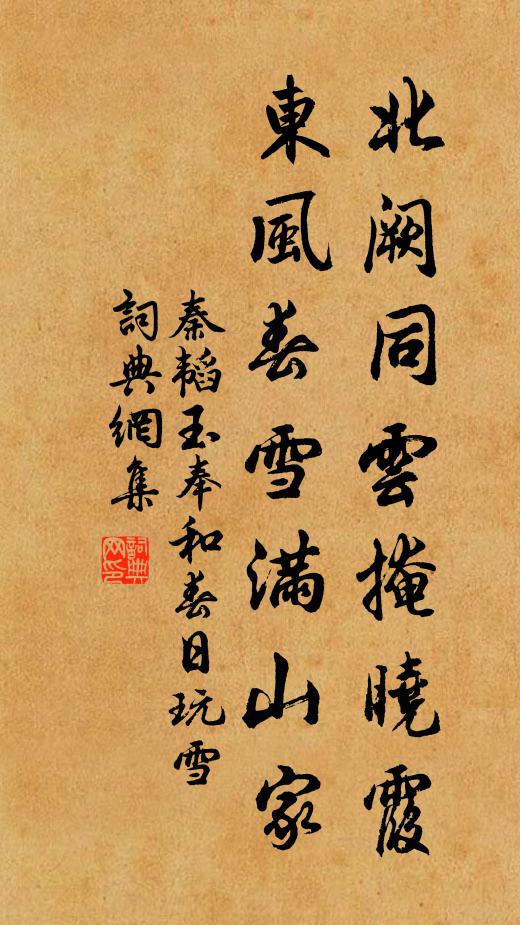 北阙同雲掩曉霞
東風春雪满山家
秦韬玉奉和春日玩雪
詞典網集
詞典
网印